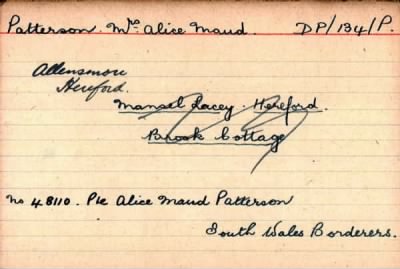 Patterson. Mrs Alice Maud. DP/134/P.
Allensmore
Hereford.
Mansel Lacey. Hereford.
Brook Cottage
No 48110. Pte Alice Maud Patterson
South Wales Borderers.